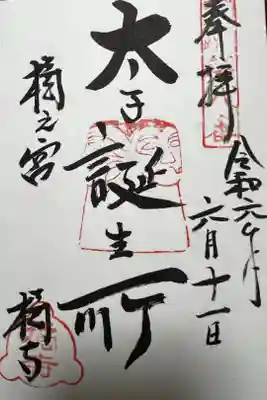 奉拝
令和元年
六月十一日
太子誕生所
橘之宮
橘寺